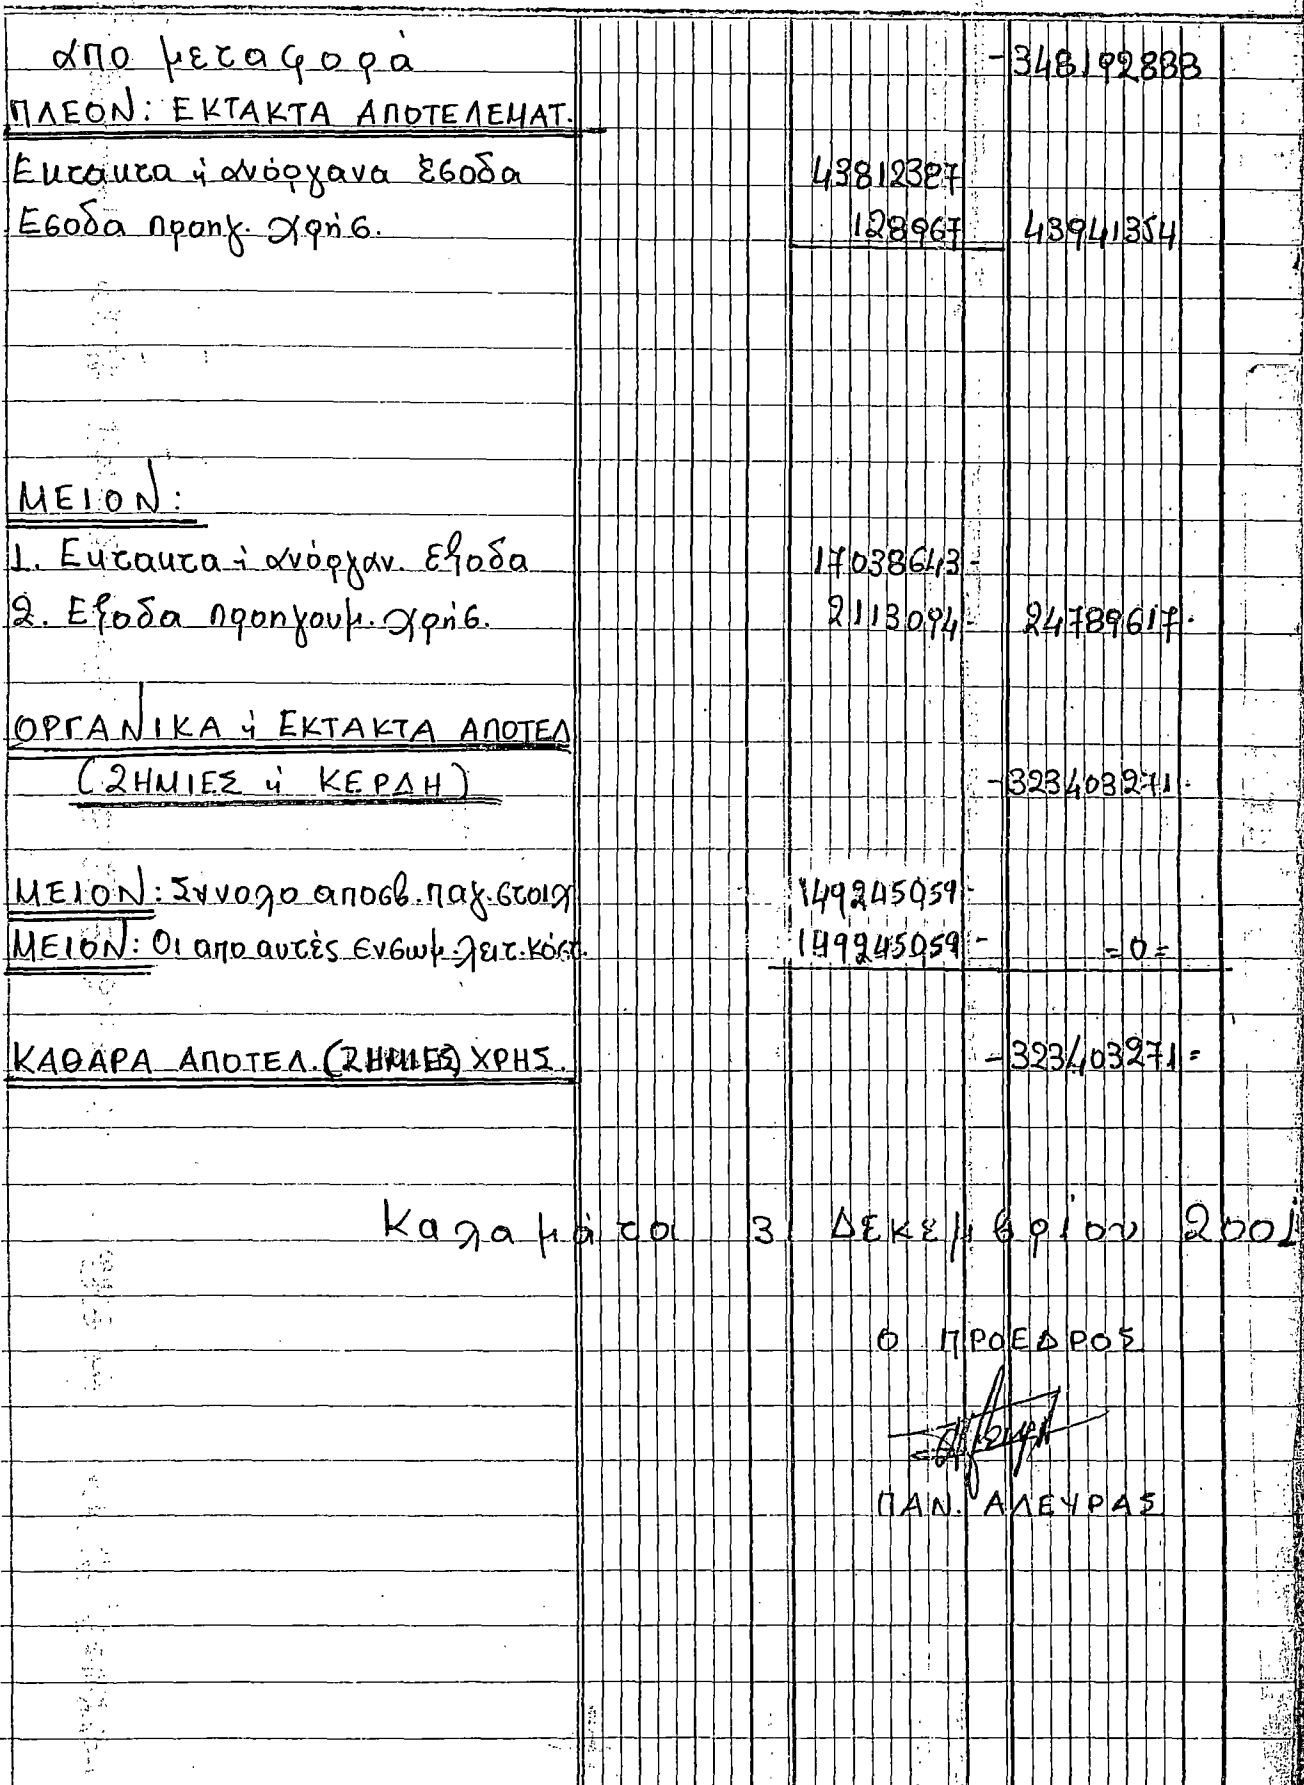 απο μεταφορά -348192888
ΠΛΕΟΝ: ΕΚΤΑΚΤΑ ΑΠΟΤΕΛΕΜΑΤ.
Εκτακτα ή ανόργανα έσοδα 43812387
Εσοδα προηγ. χρήσ. 128967 43941354
ΜΕΙΟΝ:
1. Εκτακτα ή ανόργαν. έξοδα 17038643-
2. Εξοδα προηγουμ. χρήσ. 2113094- 24789617.
ΟΡΓΑΝΙΚΑ ή ΕΚΤΑΚΤΑ ΑΠΟΤΕΛ
(ΖΗΜΙΕΣ ή ΚΕΡΔΗ) -323403271.
ΜΕΙΟΝ: Σύνολο αποσβ. παγ. στοιχ 149245059-
ΜΕΙΟΝ: Οι απο αυτές ενσωμ. λειτ. κόστ. 149245059- =0=
ΚΑΘΑΡΑ ΑΠΟΤΕΛ. (ΖΗΜΙΕΣ) ΧΡΗΣ. -323403271=
Καλαμάτα 31 Δεκεμβρίου 2001
Ο ΠΡΟΕΔΡΟΣ
ΠΑΝ. ΑΛΕΥΡΑΣ